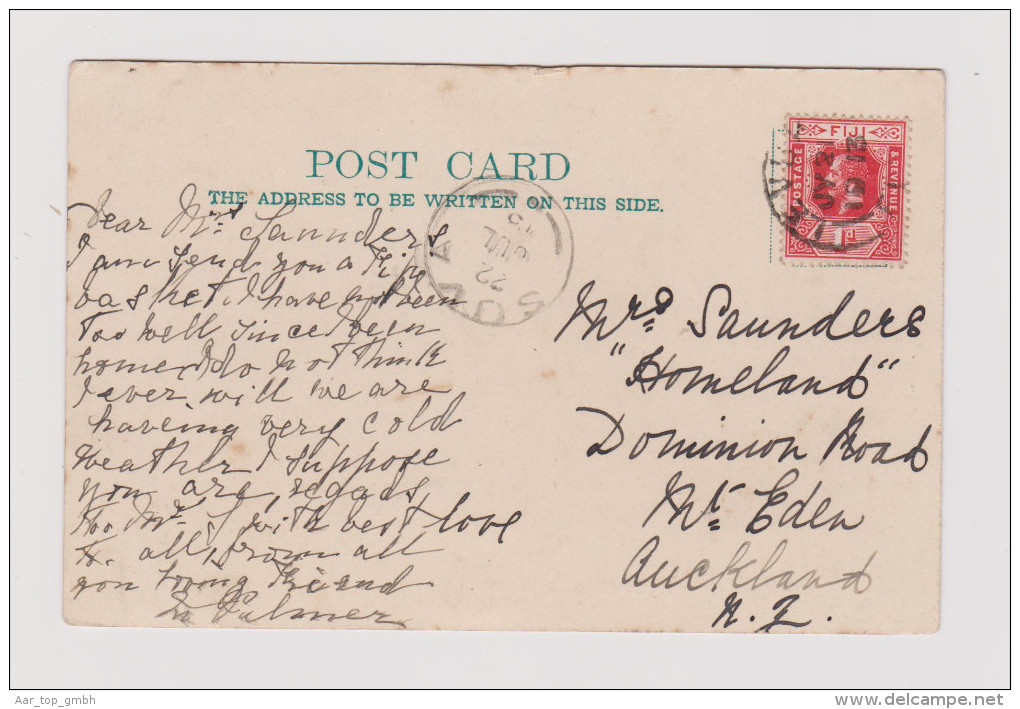 POST CARD
THE ADDRESS TO BE WRITTEN ON THIS SIDE.
FIJI
POSTAGE
& REVENUE
1d
JY 3
1913
SUVA
22
JUL
13
Dear Mrs Saunders
I am send you a Fiji
basket I have not been
too well since I been
home I do not think
I ever will we are
haveing very cold
weather I suppose
you are, regads
too Mr S with best love
to all, from all
you loving friend
Palmer
Mrs Saunders
"Homeland"
Dominion Road
Mt Eden
Auckland
N.Z.
Aar_top_gmbh
www.delcampe.net